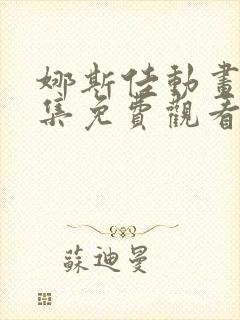 娜斯佳動畫
集免費觀看
蘇迪曼